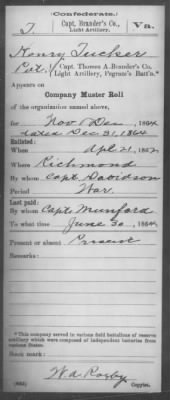 (Confederate.)
T. Capt. Brander's Co., Va.
Light Artillery.
Henry Tucker
Pvt., Capt. Thomas A. Brander's Co.,
Light Artillery, Pegram's Batt'n.*
Appears on
Company Muster Roll
of the organization named above,
for Nov & Dec, 1864
dated Dec 31, 1864
Enlisted:
When Apl. 21, 1862
Where Richmond
By whom Capt Davidson
Period War.
Last paid:
By whom Capt. Munford
To what time June 30, 1864
Present or absent Present
Remarks:
*This company served in various field battalions of reserve
artillery which were composed of independent batteries from
various States.
Book mark:
W. A. Rorby
Copyist.